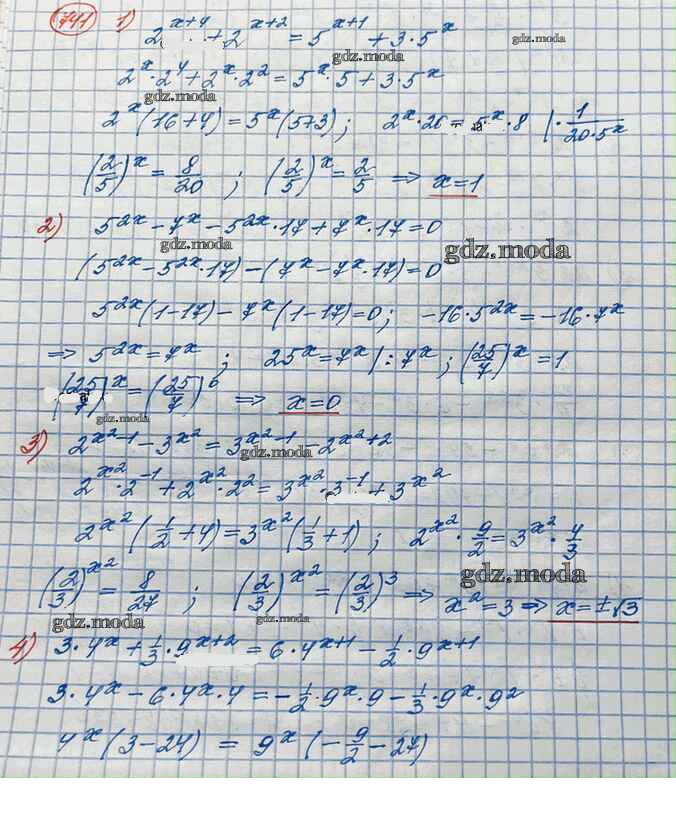 741 1) 2^{x+4} + 2^{x+2} = 5^{x+1} + 3·5^x
gdz.moda
gdz.moda
2^x·2^4 + 2^x·2^2 = 5^x·5 + 3·5^x
gdz.moda
2^x(16+4) = 5^x(5+3); 2^x·20 = 5^x·8 |·\frac{1}{20·5^x}
(\frac{2}{5})^x = \frac{8}{20}; (\frac{2}{5})^x = \frac{2}{5} ⇒ x=1
gdz.moda
2) 5^{2x} - 7^x - 5^{2x}·17 + 7^x·17 = 0
gdz.moda
gdz.moda
(5^{2x} - 5^{2x}·17) - (7^x - 7^x·17) = 0
5^{2x}(1-17) - 7^x(1-17) = 0; -16·5^{2x} = -16·7^x
⇒ 5^{2x} = 7^x; 25^x = 7^x |: 7^x; (\frac{25}{7})^x = 1
(\frac{25}{7})^x = (\frac{25}{7})^0 ⇒ x=0
gdz.moda
3) 2^{x^2-1} - 3^{x^2} = 3^{x^2-1} - 2^{x^2+2}
gdz.moda
2^{x^2}·2^{-1} + 2^{x^2}·2^2 = 3^{x^2}·3^{-1} + 3^{x^2}
2^{x^2}(\frac{1}{2}+4) = 3^{x^2}(\frac{1}{3}+1); 2^{x^2}·\frac{9}{2} = 3^{x^2}·\frac{4}{3}
gdz.moda
(\frac{2}{3})^{x^2} = \frac{8}{27}; (\frac{2}{3})^{x^2} = (\frac{2}{3})^3 ⇒ x^2 = 3 ⇒ x = ±√3
gdz.moda
gdz.moda
4) 3·4^x + \frac{1}{3}·9^{x+2} = 6·4^{x+1} - \frac{1}{2}·9^{x+1}
3·4^x - 6·4^x·4 = -\frac{1}{2}·9^x·9 - \frac{1}{3}·9^x·9^2
4^x(3-24) = 9^x(-\frac{9}{2}-27)